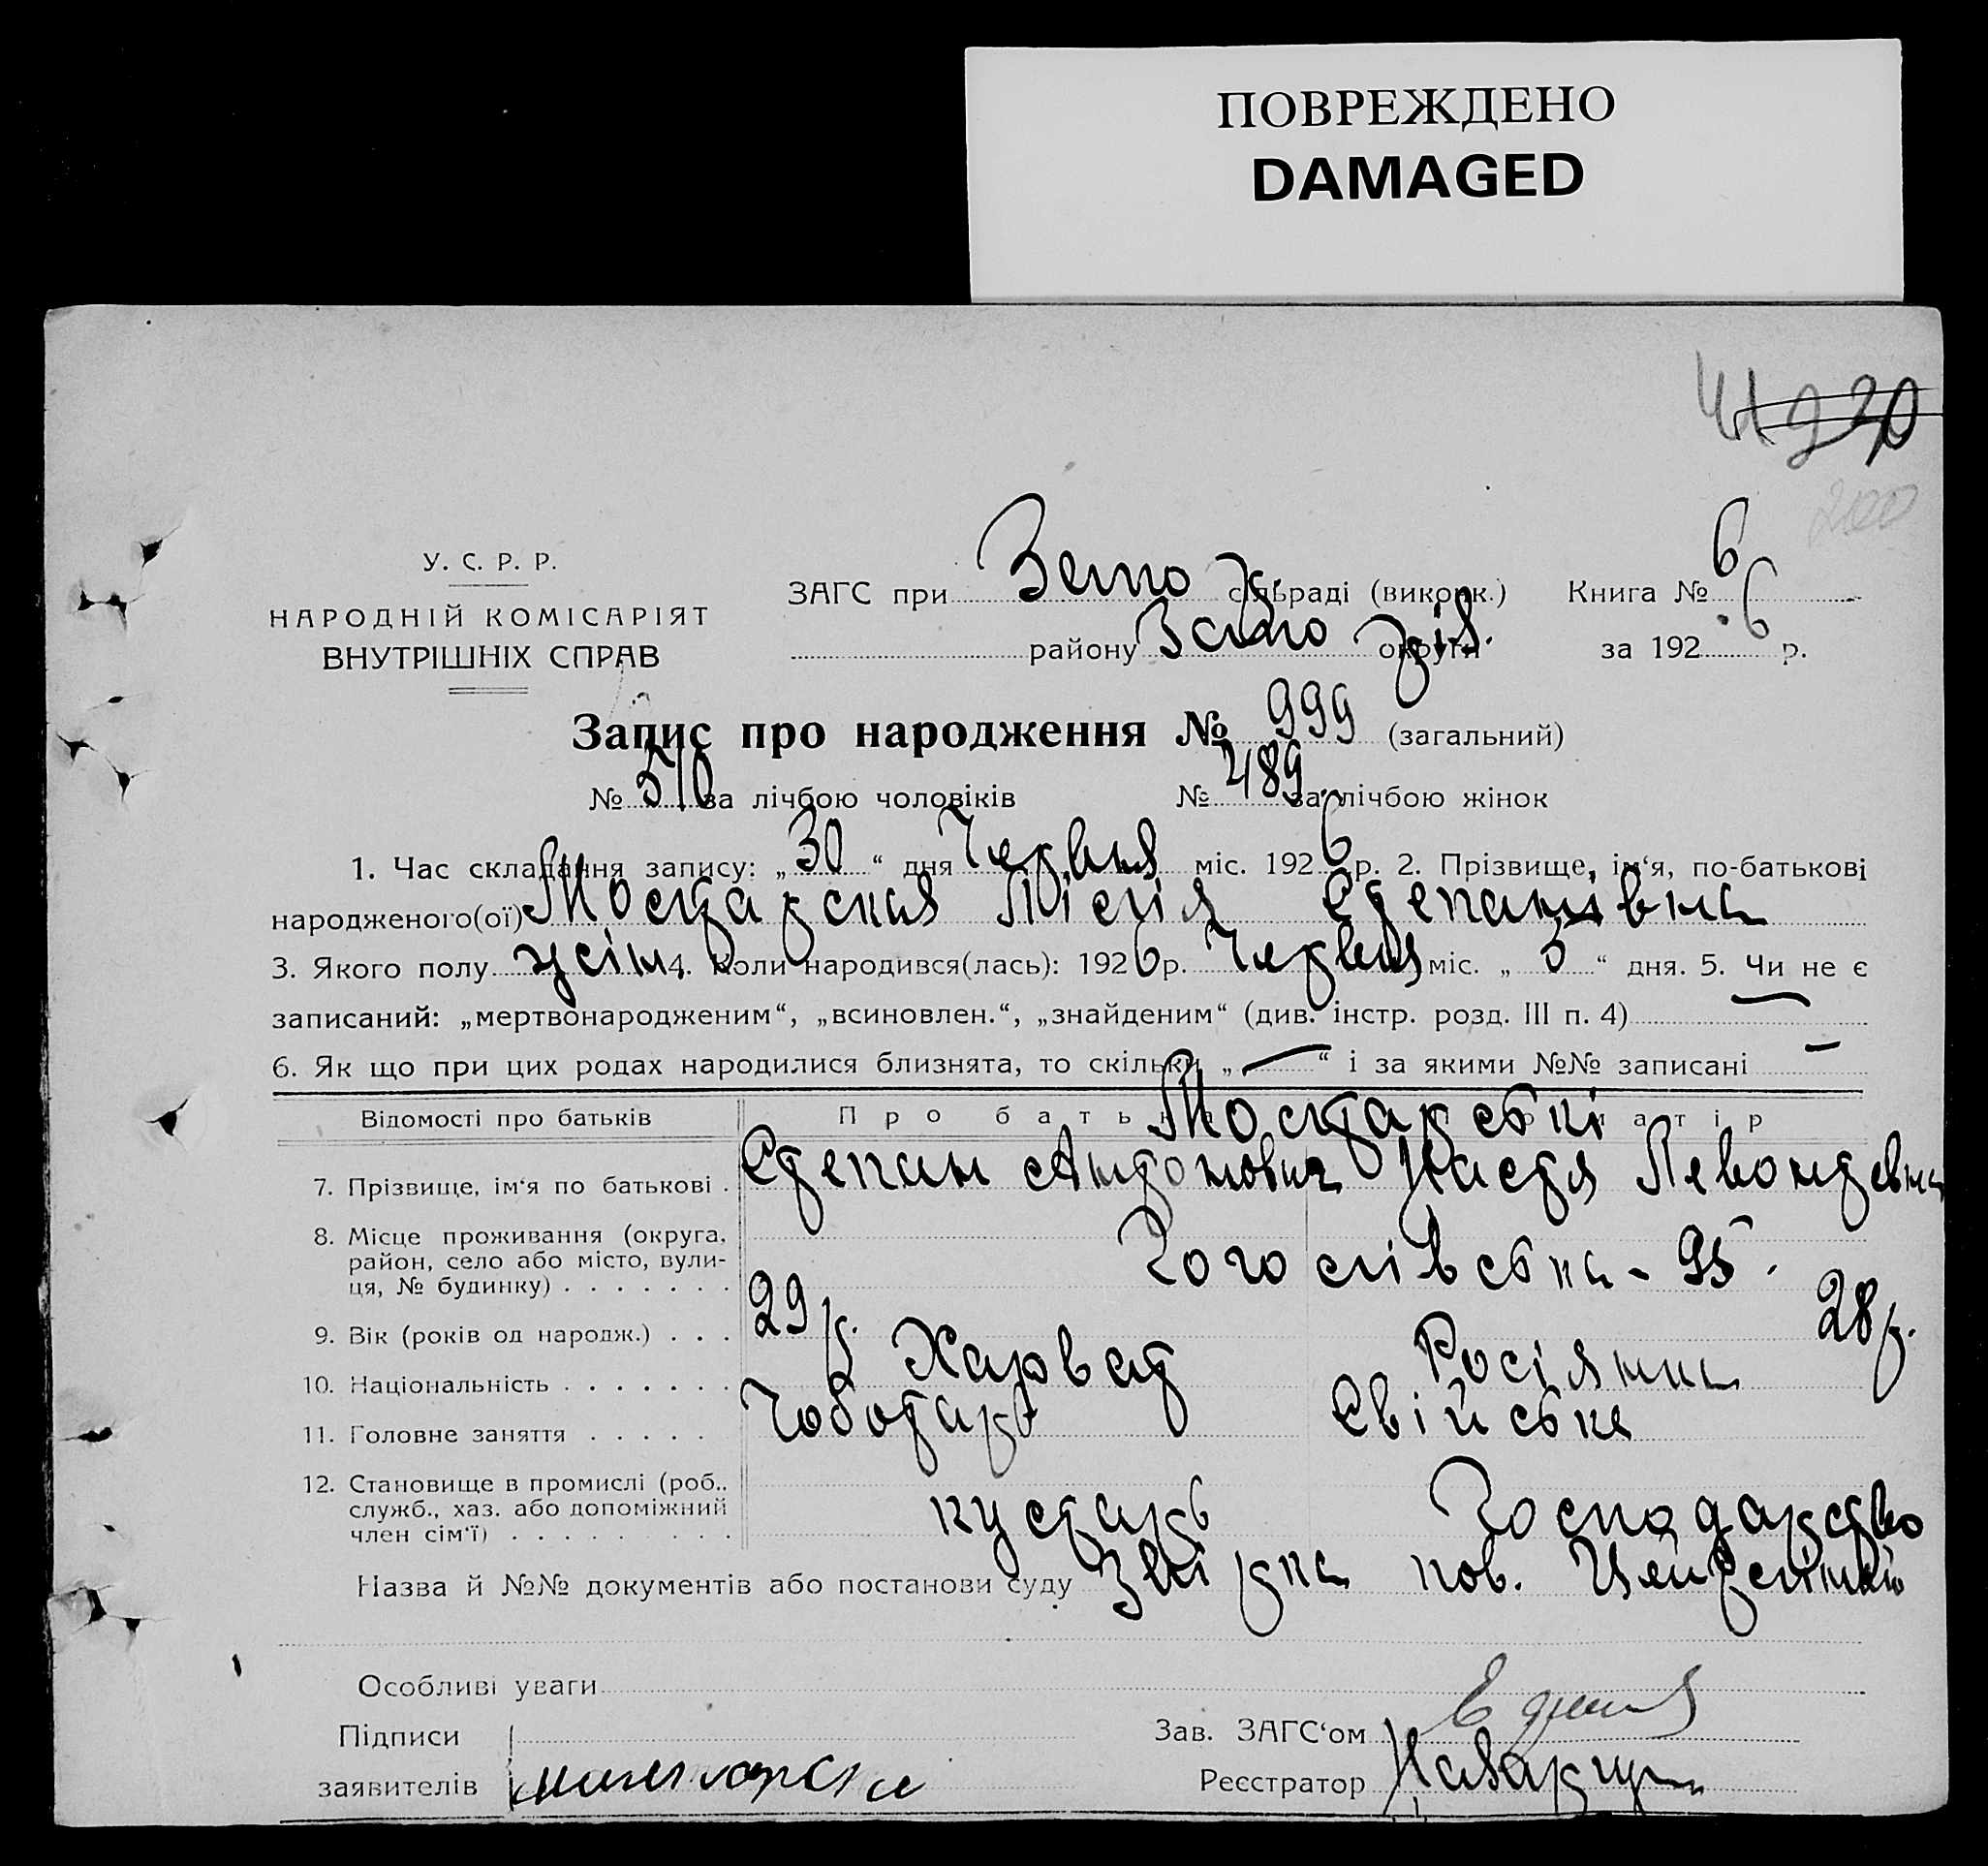 ПОВРЕЖДЕНО
DAMAGED
200
У. С. Р. Р.
НАРОДНІЙ КОМІСАРІЯТ
ВНУТРІШНІХ СПРАВ
ЗАГС при сільраді (виконк.) Книга № 6
району округи за 192 6 р.
Запис про народження № 999 (загальний)
№ 510 за лічбою чоловіків № 489 за лічбою жінок
1. Час складання запису: „ 30 “ дня Червня міс. 192 6 р. 2. Прізвище, ім‘я, по-батькові
народженого(ої) Лісія Степанівна
3. Якого полу жіш. 4. Коли народився(лась): 192 6 р. Червня міс. „ 5 “ дня. 5. Чи не є
записаний: „мертвонародженим“, „всиновлен.“, „знайденим“ (див. інстр. розд. III п. 4)
6. Як що при цих родах народилися близнята, то скільки „ — “ і за якими №№ записані —
Відомості про батьків Про батька Про матір
7. Прізвище, ім‘я по батькові . Степан Антонович Настя Левонтевна
8. Місце проживання (округа, район, село або місто, вулиця, № будинку) . . . . . . . Гоголівська - 95.
9. Вік (років од народж.) . . . 29 р. 28 р.
10. Національність . . . . . . . Харват Росіянка
11. Головне заняття . . . . . Чоботарь Свійське
12. Становище в промислі (роб., служб., хаз. або допоміжний член сім‘ї) . . . . . . . . . кустарь Господарство
Назва й №№ документів або постанови суду пов.
Особливі уваги
Підписи
заявителів
Зав. ЗАГС‘ом
Реєстратор